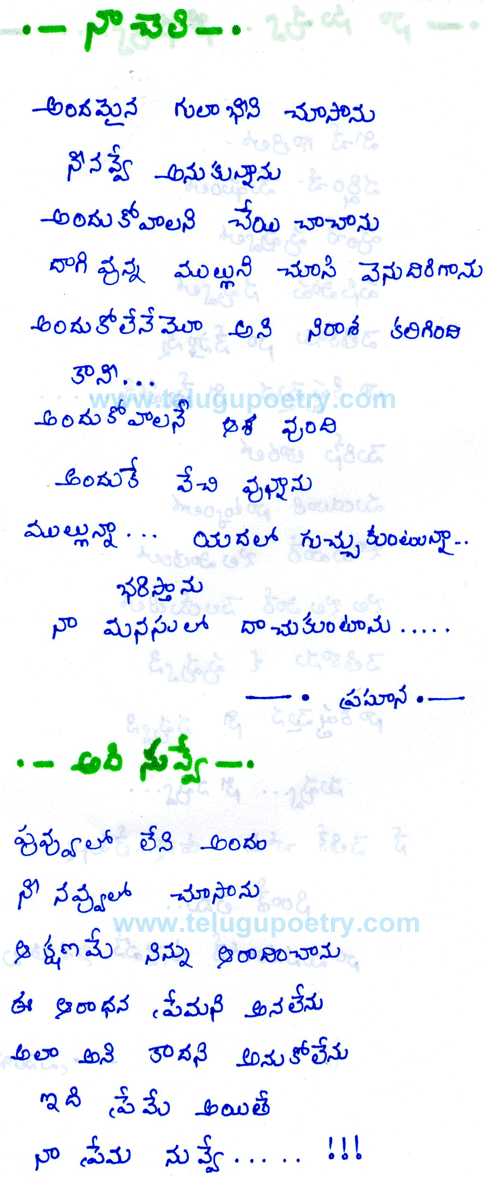 నా చెలి
అందమైన గులాభిని చూసాను
నీనవ్వే అనుకున్నాను
అందుకోవాలని చేయి చాచాను
దాగి వున్న ముల్లుని చూసి వెనుదిరిగాను
అందుకోలేనేమొ అని నిరాశ కలిగింది
కానీ...
www.telugupoetry.com
అందుకోవాలనే ఆశ వుంది
అందుకే వేచి వున్నాను
ముల్లున్నా... యదలో గుచ్చుకుంటున్నా..
భరిస్తాను
నా మనసులో దాచుకుంటాను.....
ప్రసూన
అది నువ్వే
పువ్వులో లేని అందం
నీ నవ్వులో చూసాను
www.telugupoetry.com
ఆ క్షణమే నిన్ను ఆరాదించాను
ఈ ఆరాధన ప్రేమని అనలేను
అలా అని కాదని అనుకోలేను
ఇది ప్రేమే అయితే
నా ప్రేమ నువ్వే..... !!!